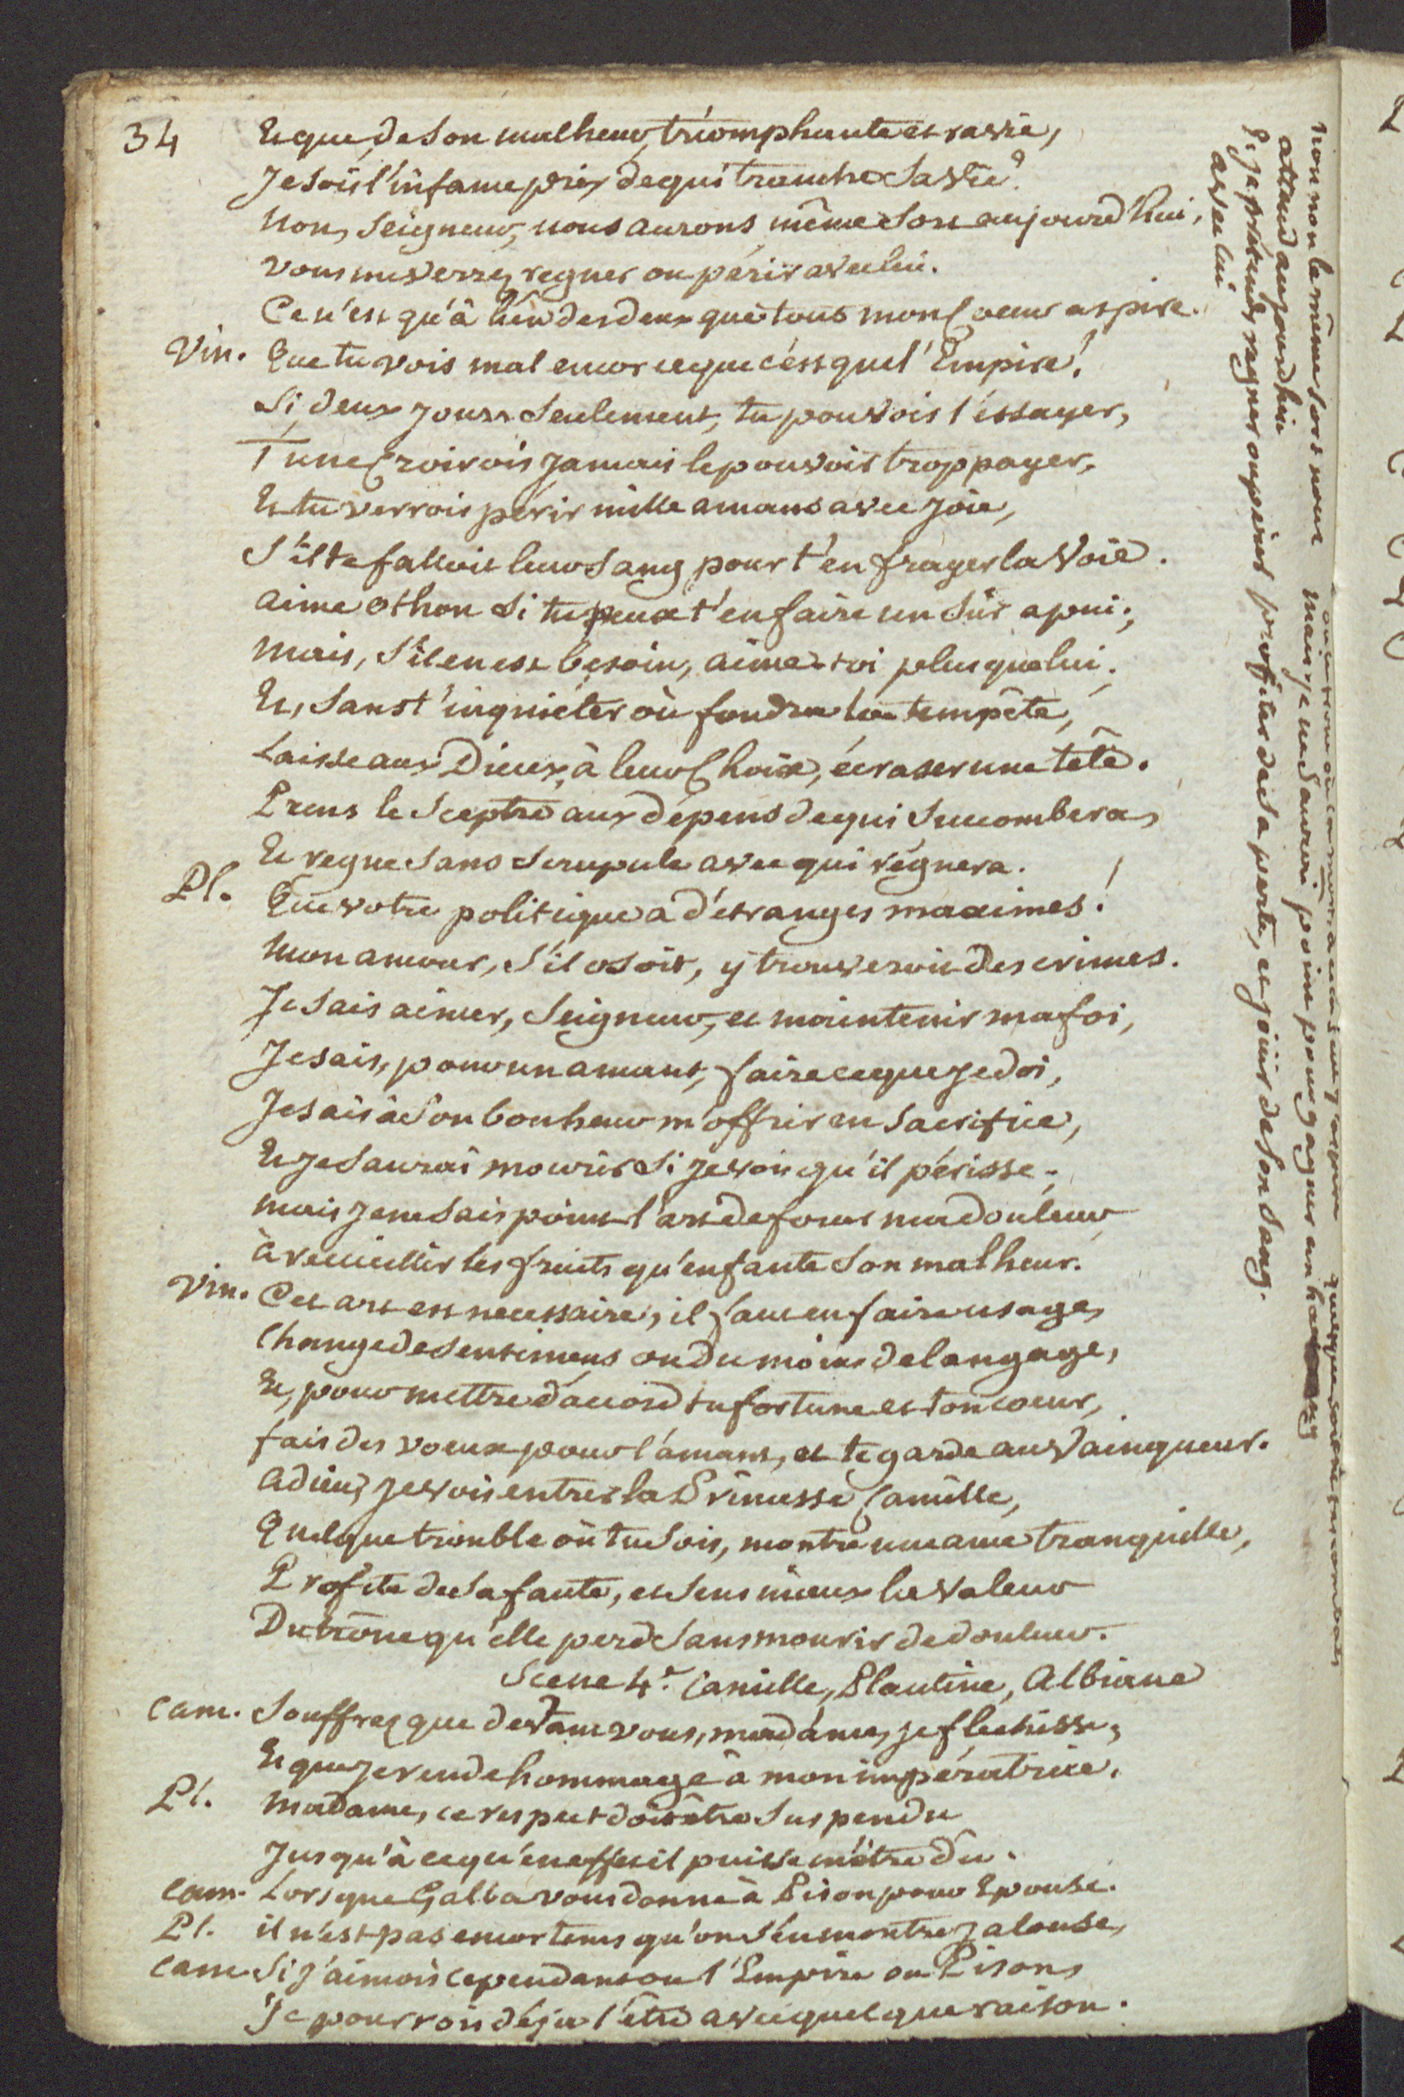 34
Et que, de son malheur, triomphante et ravie,
Je sois l'infame prix de qui tranche sa vie?
Non, Seigneur, nous aurons même sort aujourd'hui,
Vous me verrez regner ou périr avec lui.
Ce n'est qu'à l'un des deux que tout mon Coeur aspire.
Vin. Que tu vois mal encor ce que c'est que l'Empire!
Si, deux jours seulement, tu pouvois l'éssayer,
Tu ne Croirois jamais le pouvoir trop payer,
Et tu verrois périr mille amans avec joie,
S'il te falloit leur sang pour t'en frayer la voie.
aime othon si tu peux t'en faire un sûr apui;
Mais, s'il en est besoin, aime-toi plus que lui;
Et, sans t'inquiéter où fondra la tempête,
Laisse aux Dieux, à leur Choix, écraser une tête.
Prens le Sceptre aux dépens de qui succombera,
Et regne sans scrupule avec qui régnera.
Pl. Que votre politique a d'étranges maximes!
Mon amour, s'il osoit, y trouveroit des crimes.
Je sais aimer, Seigneur, et maintenir ma foi,
Je sais, pour un amant, faire ce que je doi,
Je sais à son bonheur m'offrir en sacrifice,
Et je saurai mourir si je vois qu'il périsse;
mais je ne sais point l'art de forcer ma douleur
à recueillir les fruits qu'enfante son malheur.
Vin. Cet art est necessaire, il faut en faire usage,
Change de sentimens ou du moins de langage,
Et, pour mettre d'accord ta fortune et ton coeur,
fais des voeux pour l'amant, et te garde au Vainqueur.
Adieu, je vois entrer la Princesse Camille,
Quelque trouble où tu sois, montre une ame tranquille,
Profite de sa faute, et sens mieux la valeur
Du trône qu'elle perd sans mourir de douleur.
Scene 4e Camille, Plautine, Albiane
Cam. Souffrez que devant vous, madame, je fléchisse,
Et que je rende hommage à mon impératrice.
Pl. Madame, ce respect doit être suspendu
Jusqu'à ce qu'en effet il puisse m'être dû.
Cam. Lorsque Galba vous donne à Pison pour Epouse.
Pl. il n'est pas encor tems qu'on s'en montre jalouse,
Cam. Si j'aimois cependant ou l'Empire ou Pison,
Je pourrois déja l'être avec quelque raison.
non non le même sort nous
attend aujourdhui
Et je prétends regner ou périr
avec lui
mais je ne saurai point pour gagner un
profiter de sa perte, et jouir de son sang.